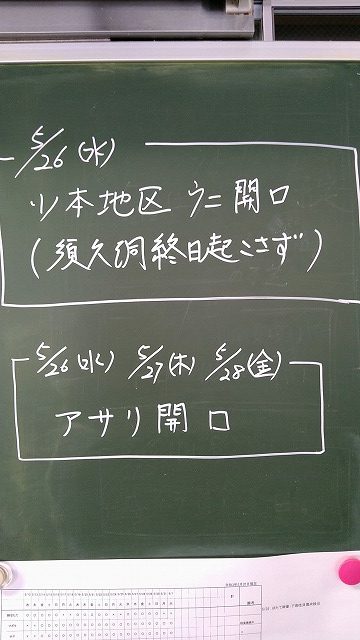 5/26(水)
リ本地区 ウニ開口
(須久洞終日起こさず)
5/26(水) 5/27(木) 5/28(金)
アサリ開口